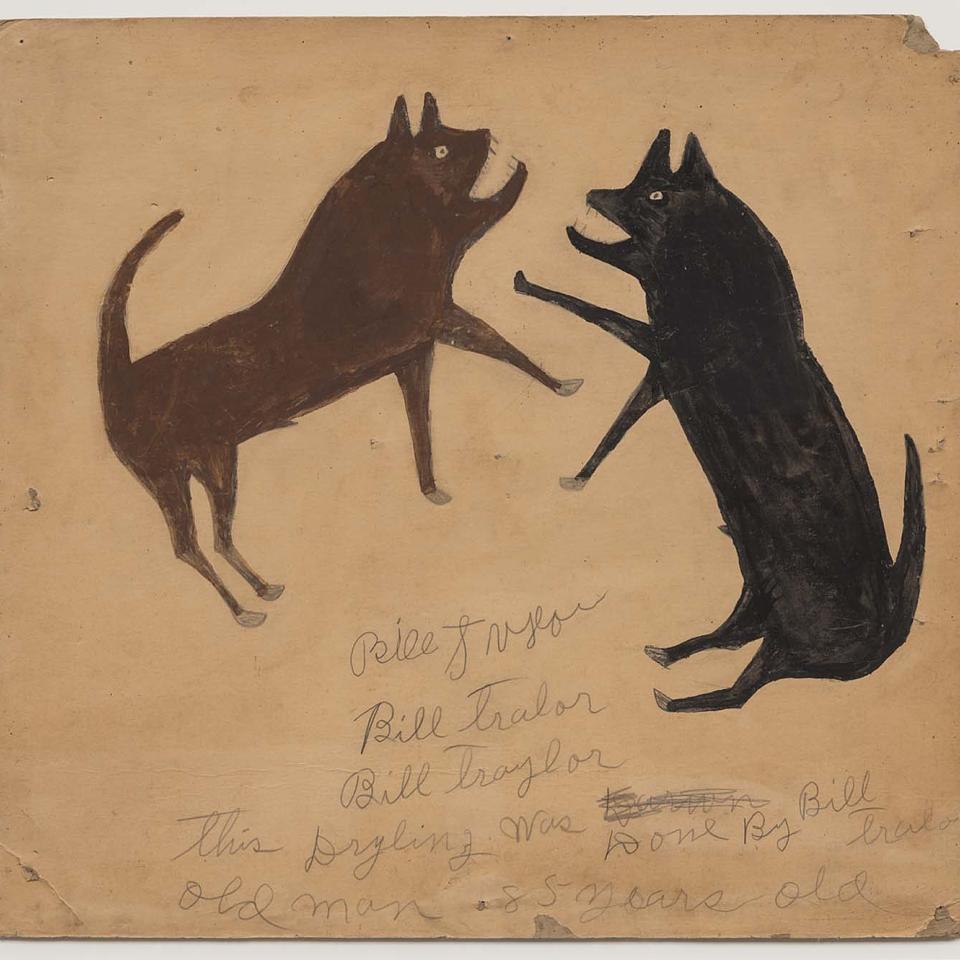 Bill
Bill tralor
Bill traylor
this Dryling was Done By Bill tralo
old man 85 years old